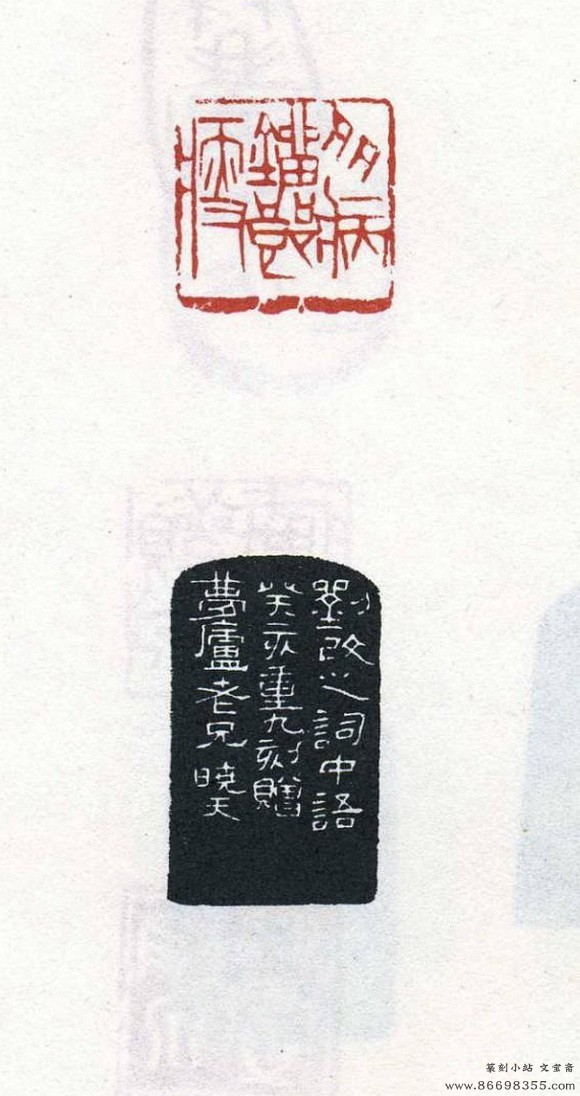 多病
鎦郎
瘦
劉改之詞中語
癸亥重九刻贈
夢廬老兄 暁天
篆刻小站 文宝斋
www.86698355.com